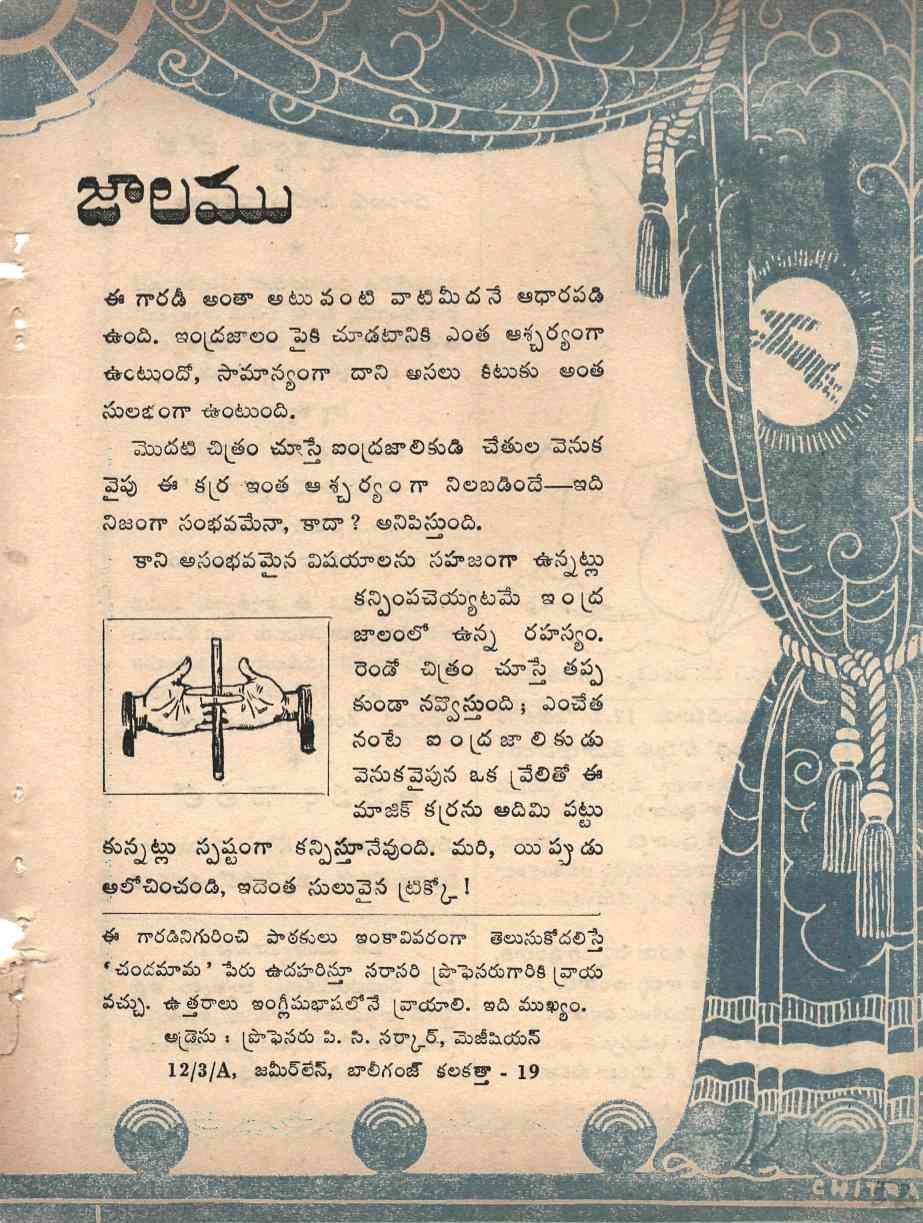 జాలము
ఈ గారడీ అంతా అటువంటి వాటిమీదనే ఆధారపడి
ఉంది. ఇంద్రజాలం పైకి చూడటానికి ఎంత ఆశ్చర్యంగా
ఉంటుందో, సామాన్యంగా దాని అసలు కిటుకు అంత
సులభంగా ఉంటుంది.
మొదటి చిత్రం చూస్తే ఐంద్రజాలికుడి చేతుల వెనుక
వైపు ఈ కర్ర ఇంత ఆశ్చర్యంగా నిలబడిందే—ఇది
నిజంగా సంభవమేనా, కాదా? అనిపిస్తుంది.
కాని అసంభవమైన విషయాలను సహజంగా ఉన్నట్లు
కన్పింపచెయ్యటమే ఇంద్ర
జాలంలో ఉన్న రహస్యం.
రెండో చిత్రం చూస్తే తప్ప
కుండా నవ్వొస్తుంది; ఎంచేత
నంటే ఐంద్రజాలికుడు
వెనుకవైపున ఒక వ్రేలితో ఈ
మాజిక్ కర్రను అదిమి పట్టు
కున్నట్లు స్పష్టంగా కన్పిస్తూనేవుంది. మరి, యిప్పుడు
ఆలోచించండి, ఇదెంత సులువైన ట్రిక్కో!
ఈ గారడినిగురించి పాఠకులు ఇంకావివరంగా తెలుసుకోదలిస్తే
‘చందమామ’ పేరు ఉదహరిస్తూ సరాసరి ప్రొఫెసరుగారికి వ్రాయ
వచ్చు. ఉత్తరాలు ఇంగ్లీషుభాషలోనే వ్రాయాలి. ఇది ముఖ్యం.
అడ్రెసు : ప్రొఫెసరు పి. సి. సర్కార్, మెజీషియన్
12/3/A, జమీర్‌లేన్, బాలీగంజ్ కలకత్తా - 19
CHITRA